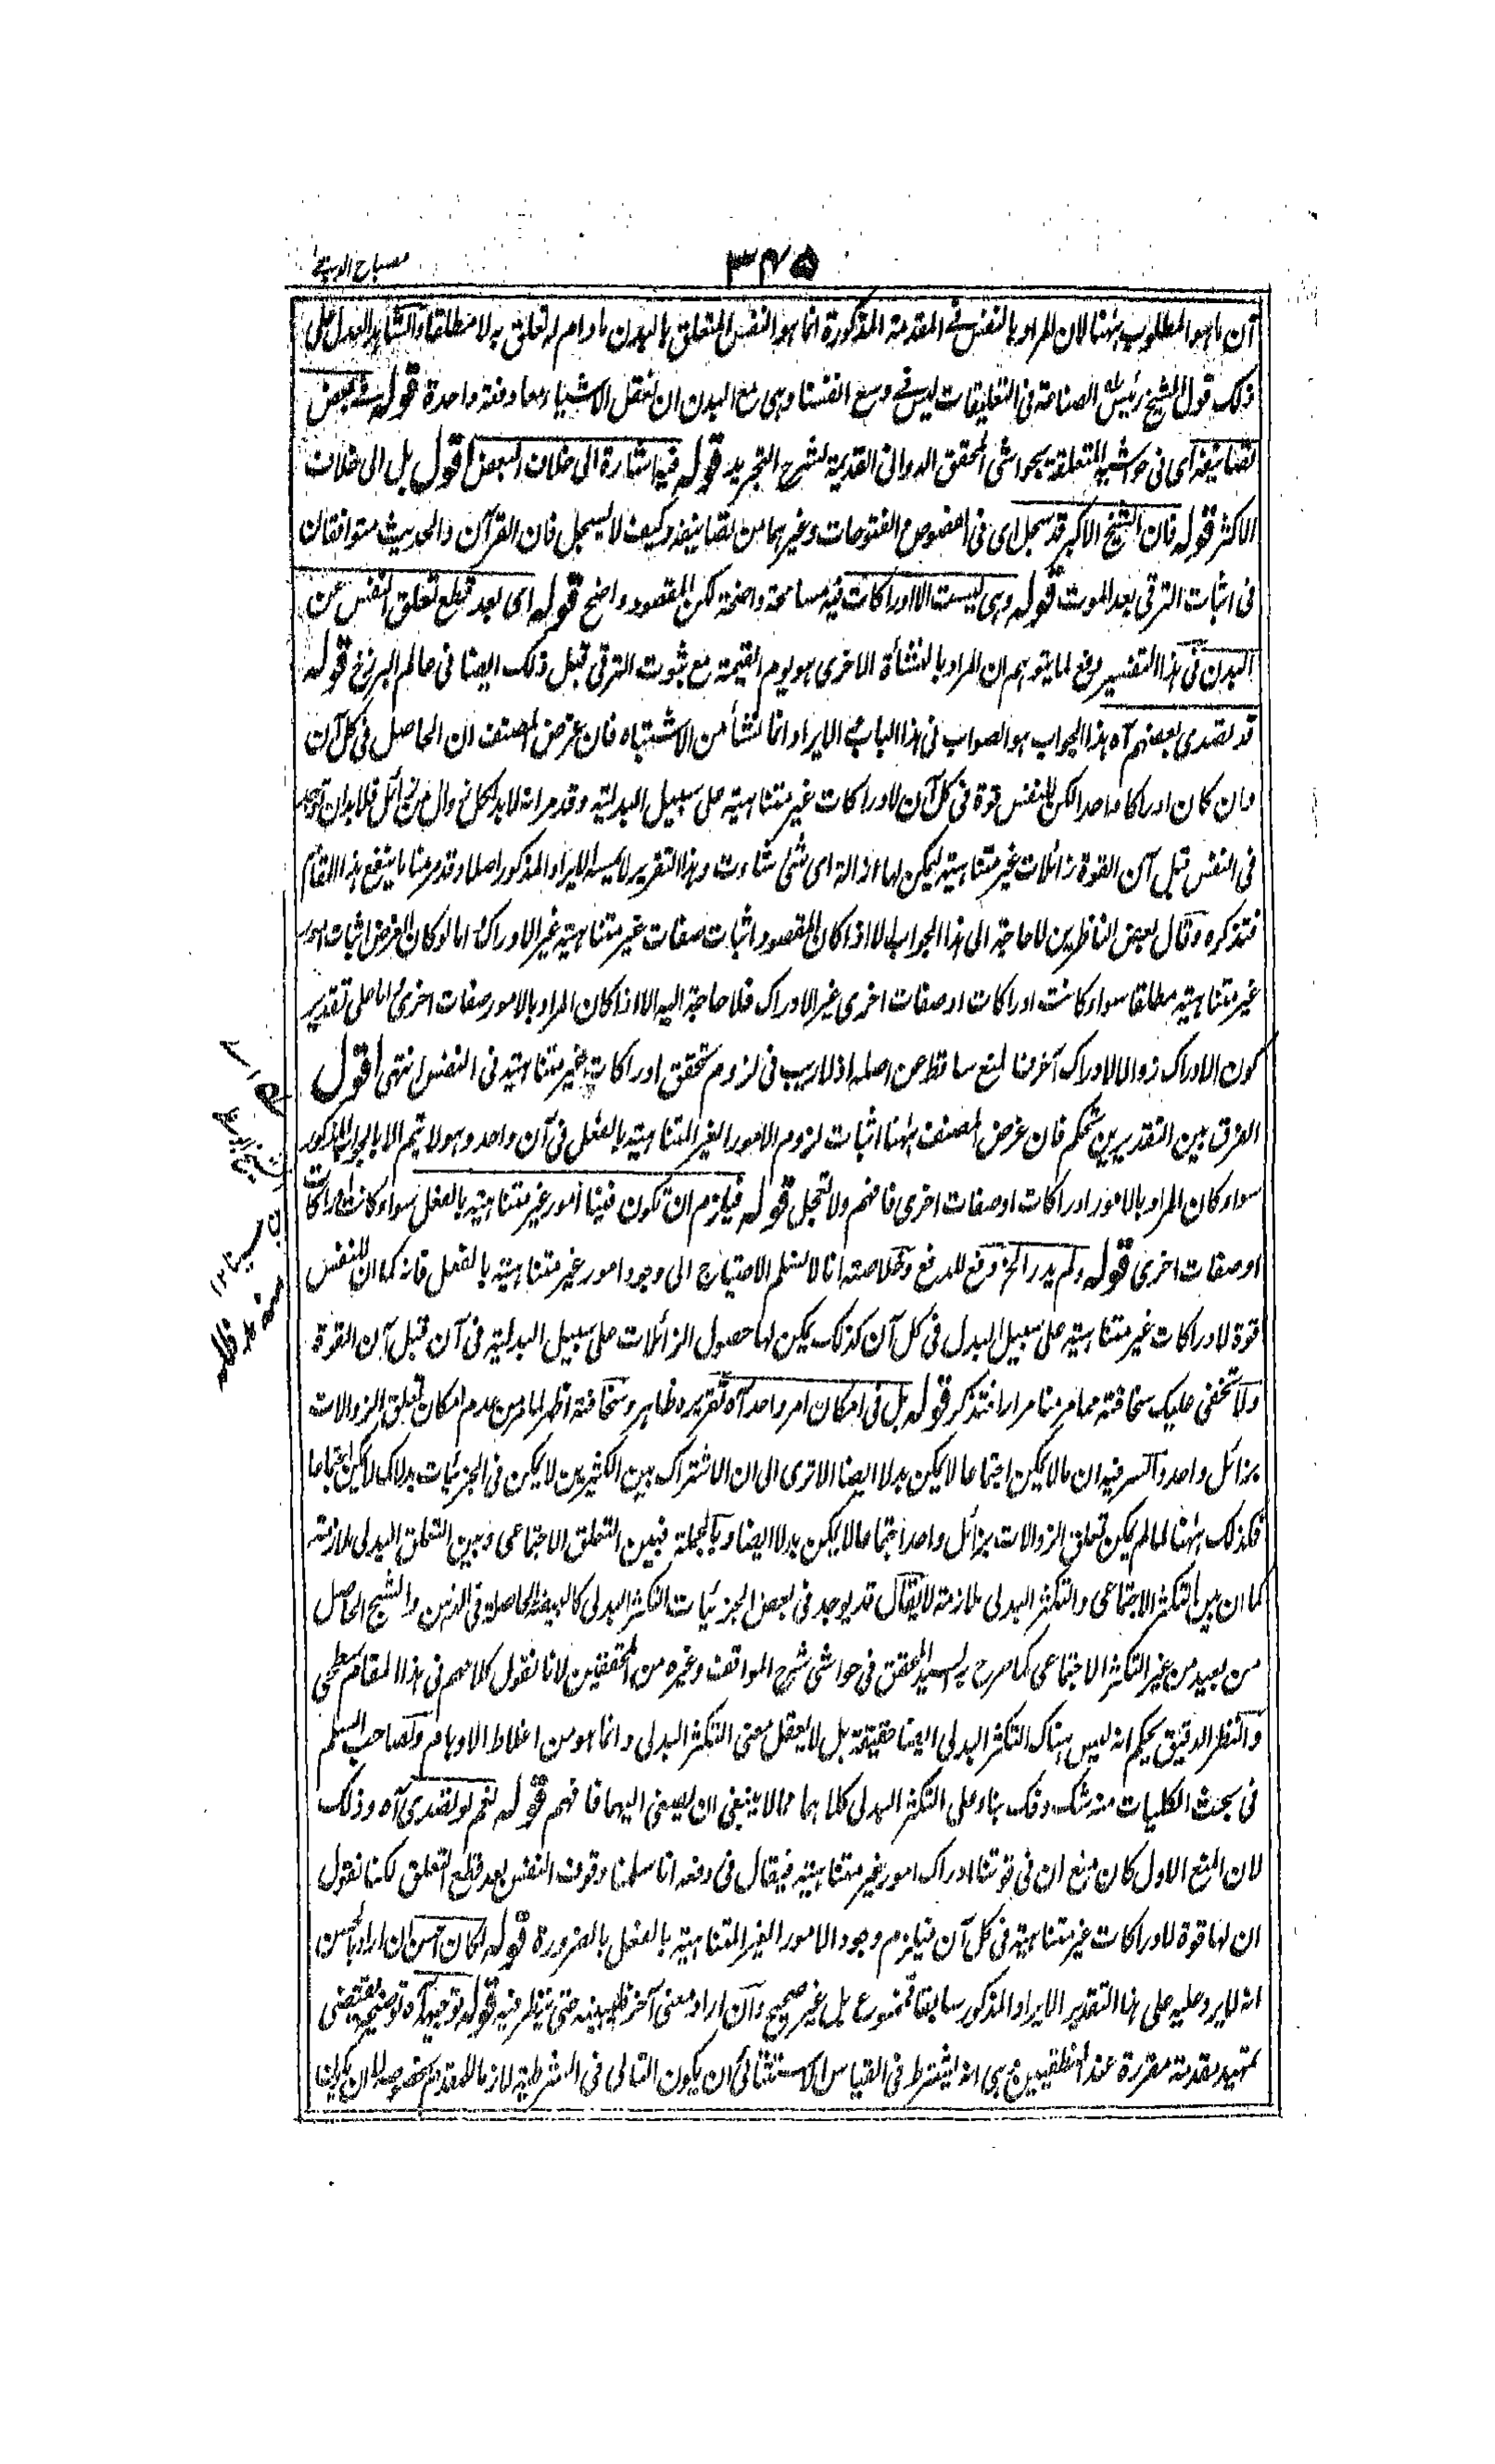 مصباح الدجى
٣٤٥
آن ما هو المطلوب ههنا لان المراد بالنفس فى المقدمة المذكورة انما هو النفس المتعلق بالبدن مادام له تعلق به لا مطلقا والشاهد العدل على
ذلك قول الشيخ رئيس الصناعة فى التعليقات ليس فى وسع انفسنا وهى مع البدن ان تعقل الاشياء معا دفعة واحدة قوله فى بعض
تصانيفه اى فى حواشيه المتعلقة بحواشى المحقق الدوانى القديمة لشرح التجريد قوله فيه اشارة الى خلاف البعض اقول بل الى خلاف
الاكثر قوله فان الشيخ الاكبر قد سجل اى فى الفصوص والفتوحات وغيرهما من تصانيفه وكيف لا يسجل فان القرآن والحديث متوافقان
فى اثبات الترقى بعد الموت قوله وهى ليست الا ادراكات فيه مسامحة واضحة لكن المقصود واضح قوله اى بعد قطع تعلق النفس عن
البدن فى هذا التفسير دفع لما يتوهم ان المراد بالنشأة الاخرى هو يوم القيمة مع ثبوت الترقى قبل ذلك ايضا فى عالم البرزخ قوله
قد تصدى بعضهم آه هذا الجواب هو الصواب فى هذا الباب الايراد انما نشأ من الاشتباه فان غرض المصنف ان الحاصل فى كل آن
وان كان ادراكا واحدا لكن للنفس قوة فى كل آن لادراكات غير متناهية على سبيل البدلية وقد مر انه لابد لكل زوال من زائل فلابد ان توجد
فى النفس قبل آن القوة زائلات غير متناهية ليمكن لها ازالة اى شئ شاءت وهذا التقرير لا يمسه الايراد المذكور اصلا وقد مر منا ما ينفع هذا المقام
فتذكره وقال بعض الناظرين لا حاجة الى هذا الجواب الا اذا كان المقصود اثبات صفات غير متناهية غير الادراك اما لو كان الغرض اثبات امور
غير متناهية مطلقا سواء كانت ادراكات او صفات اخرى غير الادراك فلا حاجة اليه الا اذا كان المراد بالامور صفات اخرى واما على تقدير
كون الادراك زوالا لادراك آخر فالمنع ساقط عن اصله اذ لا ريب فى لزوم تحقق ادراكات غير متناهية فى النفس انتهى اقول
الفرق بين التقديرين تحكم فان غرض المصنف ههنا اثبات لزوم الامور الغير المتناهية بالفعل فى آن واحد وهو لا يتم الا بالجواب المذكور
سواء كان المراد بالامور ادراكات او صفات اخرى فافهم ولا تعجل قوله فيلزم ان تكون فينا امور غير متناهية بالفعل سواء كانت ادراكات
او صفات اخرى قوله ولم يدر الخ دفع للدفع وخلاصته انا لا نسلم الاحتياج الى وجود امور غير متناهية بالفعل فانه كما ان للنفس
قوة لادراكات غير متناهية على سبيل البدل فى كل آن كذلك يمكن لها حصول الزائلات على سبيل البدلية فى آن قبل آن القوة
ولا تخفى عليك سخافته مما مر منا مرارا فتذكر قوله بل فى امكان امر واحد آه تقريره ظاهر وسخافته اظهر لما مر من عدم امكان تعلق الزوالات
بزائل واحد والسر فيه ان ما لا يمكن اجتماعا لا يمكن بدلا ايضا الا ترى الى ان الاشتراك بين الكثيرين لا يمكن فى الجزئيات بدلا كما لا يمكن اجتماعا
فكذلك ههنا لما لم يمكن تعلق الزوالات بزائل واحد اجتماعا لا يمكن بدلا ايضا وبالجملة فبين التعلق الاجتماعى وبين التعلق البدلى ملازمة
كما ان بين التكثر الاجتماعى والتكثر البدلى ملازمة لا يقال قد يوجد فى بعض الجزئيات التكثر البدلى كالبيضة الحاصلة فى الذهن والشبح الحاصل
من بعيد من غير التكثر الاجتماعى كما صرح به السيد المحقق فى حواشى شرح المواقف وغيره من المحققين لانا نقول كلامهم فى هذا المقام سطحى
والنظر الدقيق يحكم انه ليس هناك التكثر البدلى ايضا حقيقة بل لا يعقل معنى التكثر البدلى وانما هو من اغلاط الاوهام ولصاحب السلم
فى بحث الكليات منه شك وفك بناء على التكثر البدلى كلاهما مما لا ينبغى ان يصغى اليهما فافهم قوله نعم لو تصدى آه وذلك
لان المنع الاول كان منع ان فى قوتنا ادراك امور غير متناهية فيقال فى دفعه انا سلمنا وقوف النفس بعد قطع التعلق لكنا نقول
ان لها قوة لادراكات غير متناهية فى كل آن فيلزم وجود الامور الغير المتناهية بالفعل بالضرورة قوله لكان احسن ان اراد باحسن
انه لا يرد عليه على هذا التقدير الايراد المذكور سابقا فممنوع بل غير صحيح وان اراد معنى آخر فليبينه حتى ينظر فيه قوله توجيه آه توضيحه يقتضى
تمهيد مقدمة مقررة عند المنطقيين هى انه يشترط فى القياس الاستثنائى ان يكون التالى فى الشرطية لازما للمقدم بخصوصه لا ان يكون
بن سينا ١٢
منه مد ظله